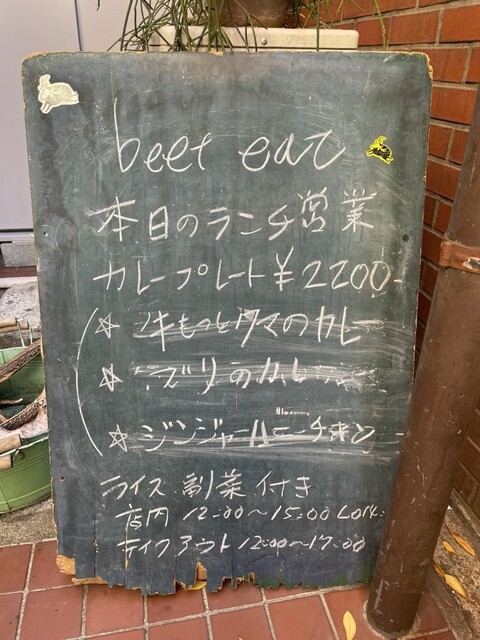 beet eat
本日のランチ営業
カレープレート¥2200-
☆ 牛もつとクマのカレー
☆ のカレー
☆ ジンジャーハニーチキン
ライス 副菜付き
店内 12:00〜15:00 Lo
テイクアウト 12:00〜17:00